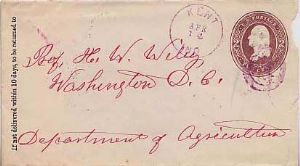 If not delivered within 10 days, to be returned to
KENT
APR
IND.
Prof. H. W. Wiley
Washington D. C.
Department of Agriculture